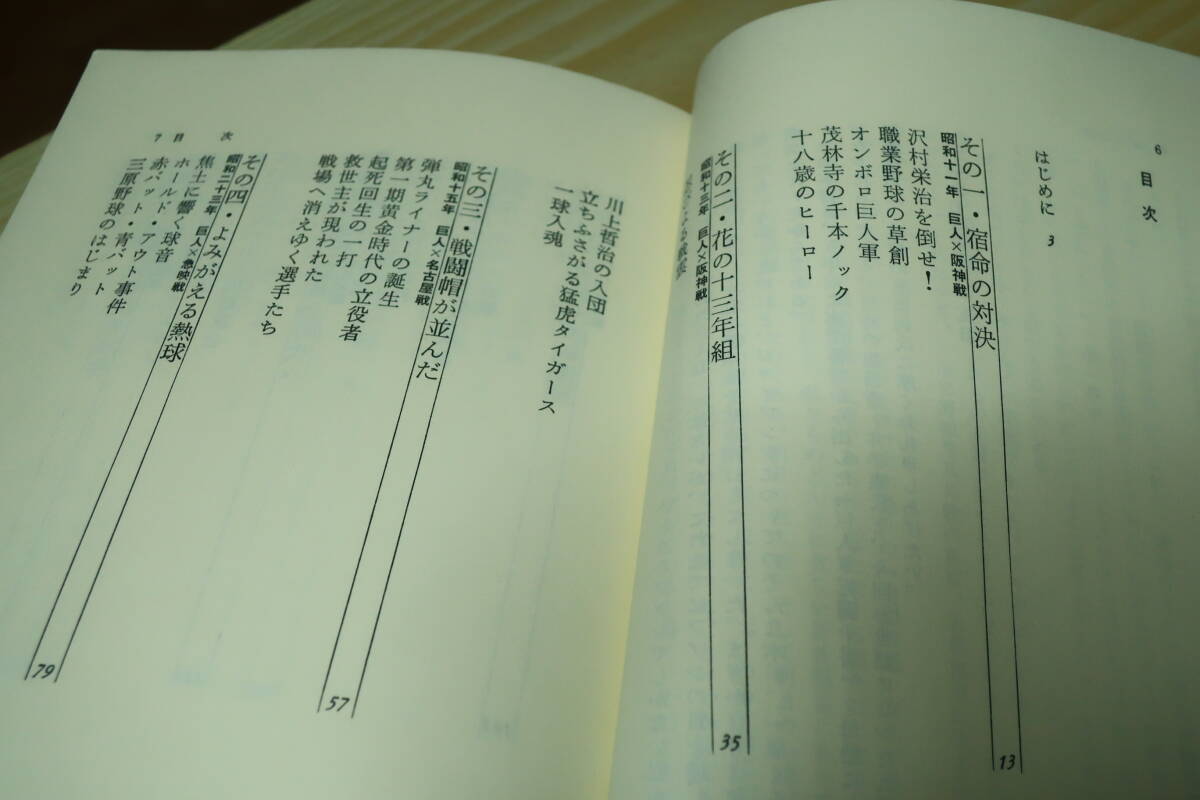 6 目次
はじめに 3
その一・宿命の対決 13
昭和十一年 巨人×阪神戦
沢村栄治を倒せ!
職業野球の草創
オンボロ巨人軍
茂林寺の千本ノック
十八歳のヒーロー
その二・花の十三年組 35
昭和十三年 巨人×阪神戦
川上哲治の入団
立ちふさがる猛虎タイガース
一球入魂
その三・戦闘帽が並んだ 57
昭和十五年 巨人×名古屋戦
弾丸ライナーの誕生
第一期黄金時代の立役者
起死回生の一打
救世主が現われた
戦場へ消えゆく選手たち
その四・よみがえる熱球 79
昭和二十三年 巨人×急映戦
焦土に響く球音
ホールド・アウト事件
赤バット・青バット
三原野球のはじまり
7 目次